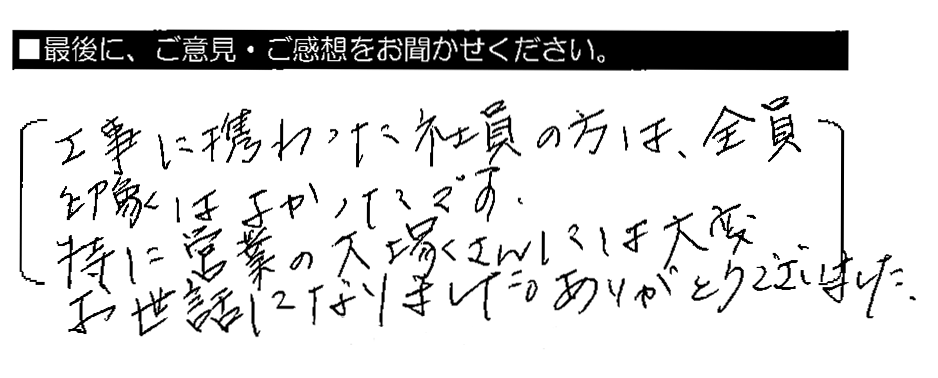 ■最後に、ご意見・ご感想をお聞かせください。
工事に携わった社員の方は、全員
印象はよかったです.
特に営業の大場さんには大変
お世話になりました。ありがとうございました.